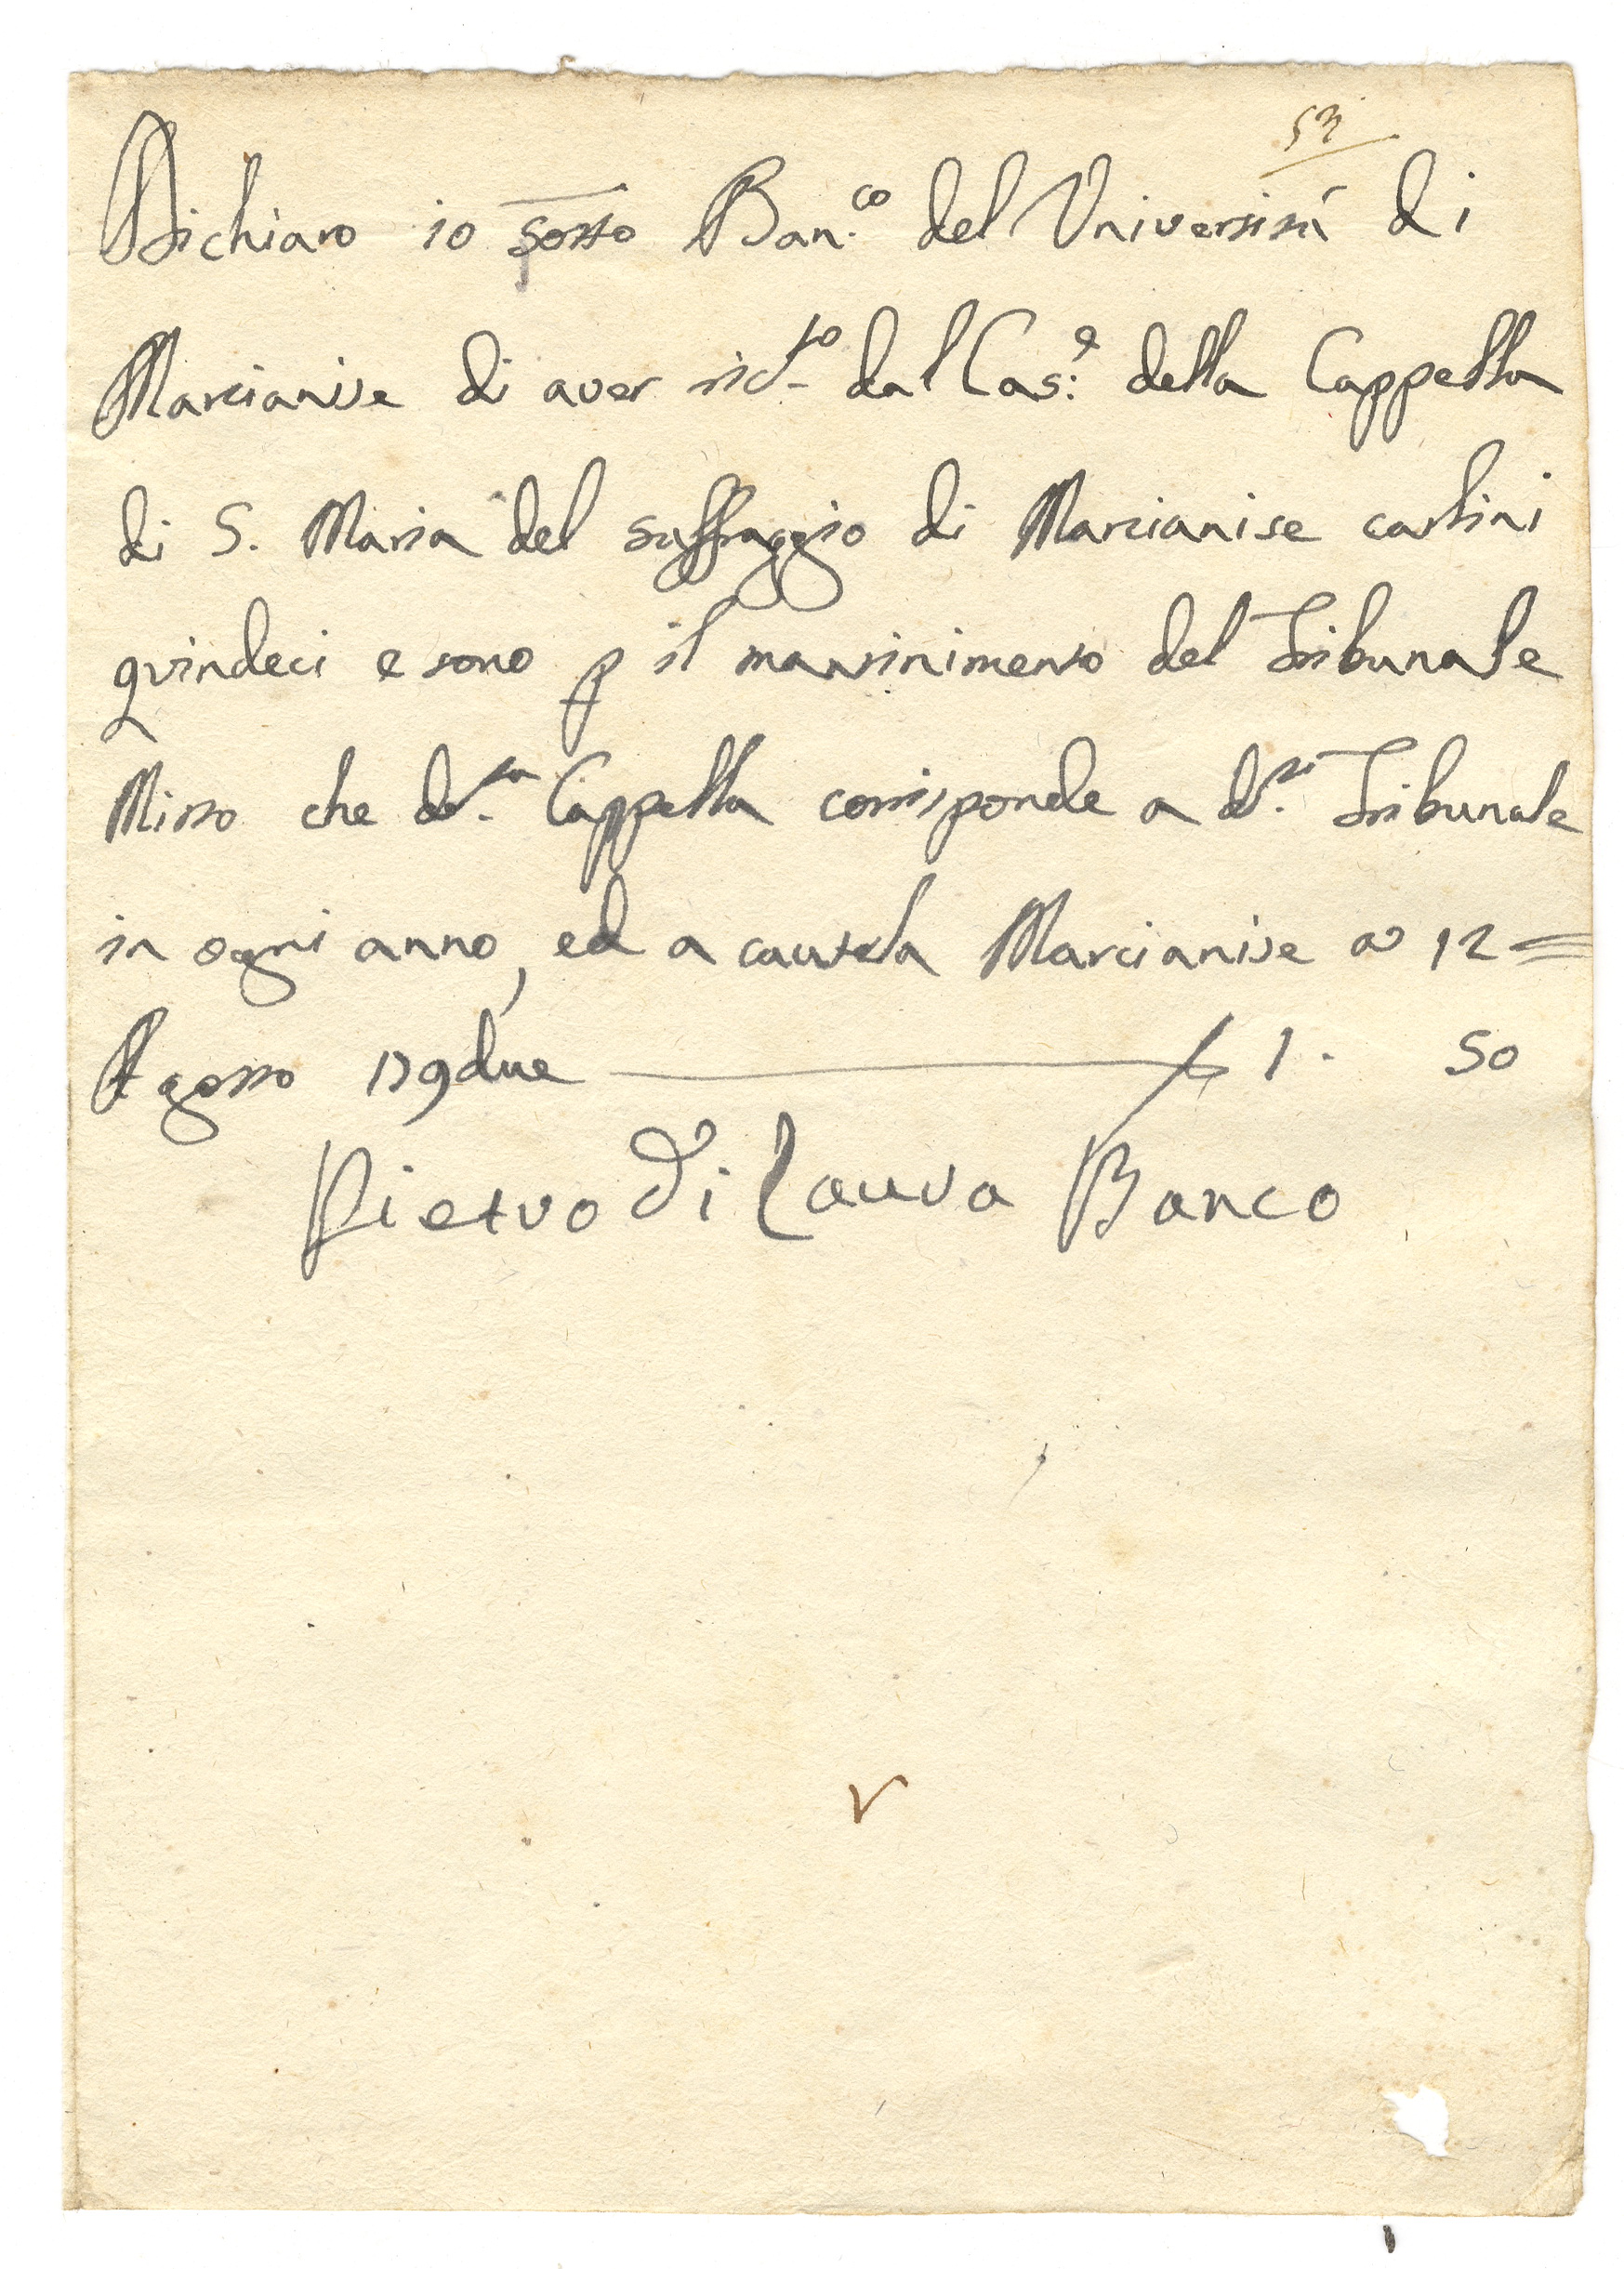 53
Dichiaro io sotto Ban.co del Università di
Marcianise di aver ric.to dal Cas:e della Cappella
di S. Maria del suffraggio di Marcianise carlini
quindeci e sono p il mantinimento del Tribunale
Misto che d.ta Cappella corrisponde a d.to Tribunale
in ogni anno, ed a cautela Marcianise a 12=
Agosto 179due — 1. 50
Pietro di Lauro Banco